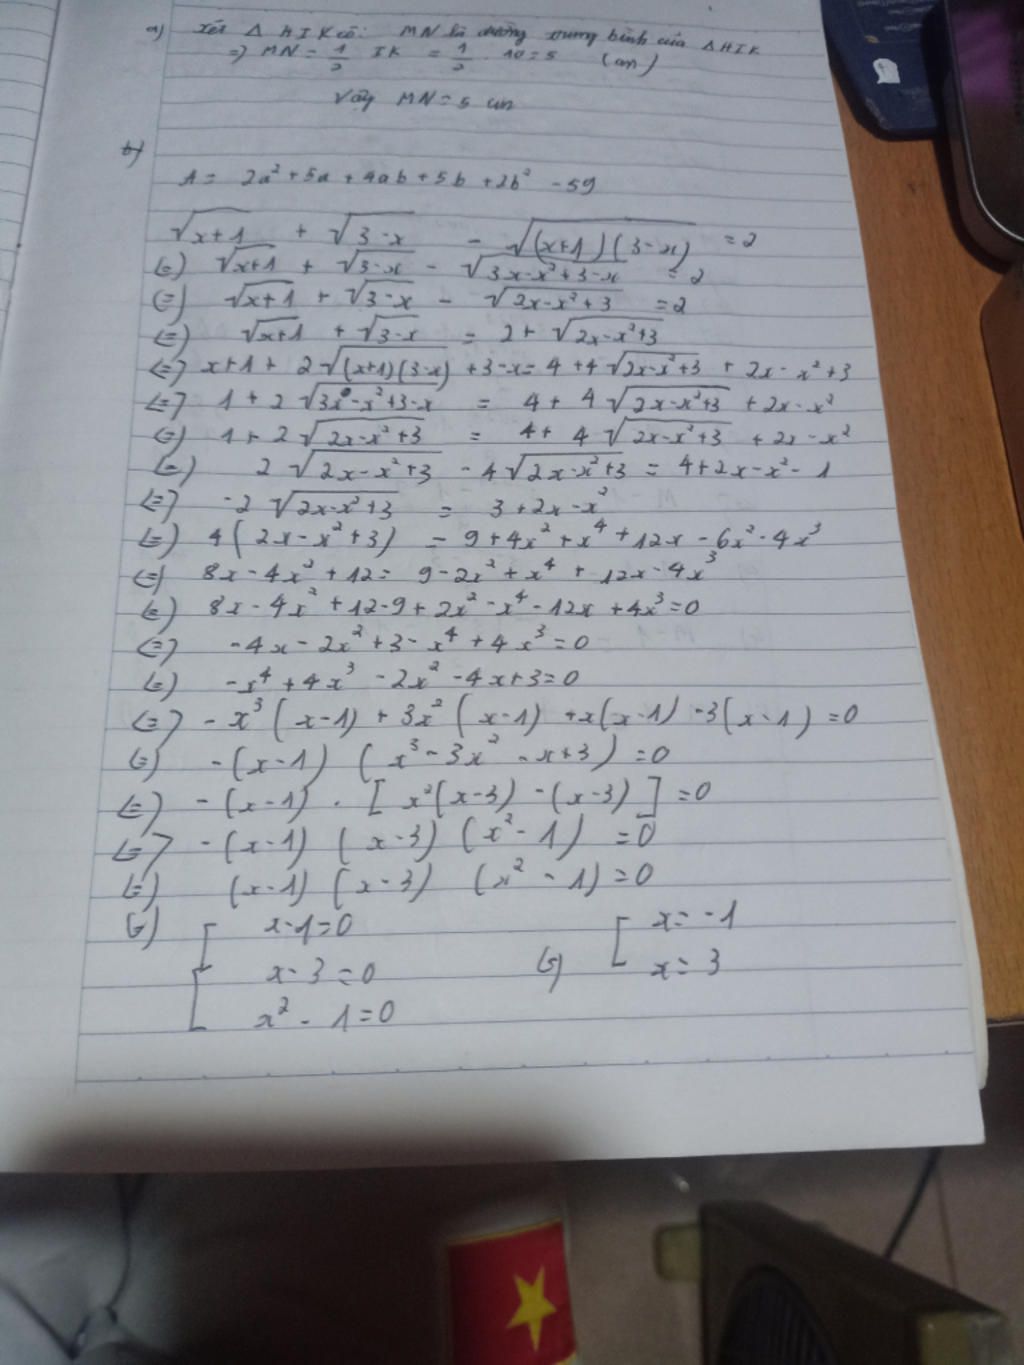 a) Xét Δ HIK có: MN là đường trung bình của Δ HIK
=> MN = 1/2 IK = 1/2 . 10 = 5 (cm)
Vậy MN = 5 cm
b)
A = 2a² + 5a + 4ab + 5b + 2b² - 59
√(x+1) + √(3-x) - √((x+1)(3-x)) = 2
(=) √(x+1) + √(3-x) - √(3x-x²+3-x) = 2
(=) √(x+1) + √(3-x) - √(2x-x²+3) = 2
(=) √(x+1) + √(3-x) = 2 + √(2x-x²+3)
<=> x+1 + 2√((x+1)(3-x)) + 3-x = 4 + 4√(2x-x²+3) + 2x - x² + 3
<=> 1 + 2√(3x-x²+3-x) = 4 + 4√(2x-x²+3) + 2x - x²
(=) 1 + 2√(2x-x²+3) = 4 + 4√(2x-x²+3) + 2x - x²
(=) 2√(2x-x²+3) - 4√(2x-x²+3) = 4+2x-x²-1
<=> -2√(2x-x²+3) = 3+2x-x²
(=) 4(2x-x²+3) = 9+4x²+x⁴+12x-6x²-4x³
(=) 8x-4x²+12 = 9-2x²+x⁴+12x-4x³
(=) 8x-4x²+12-9+2x²-x⁴-12x+4x³=0
(=) -4x-2x²+3-x⁴+4x³=0
(=) -x⁴+4x³-2x²-4x+3=0
<=> -x³(x-1)+3x²(x-1)+x(x-1)-3(x-1)=0
(=) -(x-1)(x³-3x²-x+3)=0
(=) -(x-1).[x²(x-3)-(x-3)]=0
<=> -(x-1)(x-3)(x²-1)=0
(=) (x-1)(x-3)(x²-1)=0
(=) [ x-1=0
x-3=0
x²-1=0
(=) [ x=-1
x=3